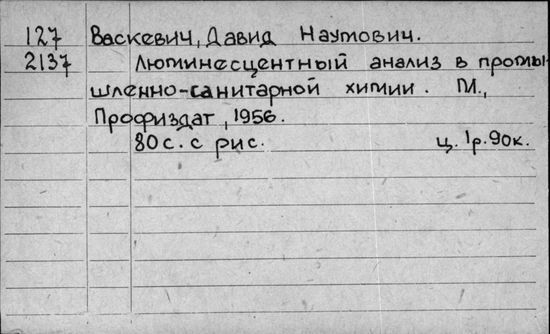 127 Васкевич, Давид Наумович.
2137 Люминесцентный анализ в промы-
шленно-санитарной химии. М.,
Профиздат, 1956.
80 с. с рис. ц. 1р. 90к.